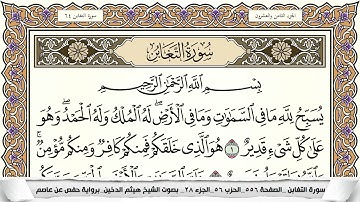 الجزء الثامن والعشرون
سورة التغابن ٦٤
سُورَةُ التَّغَابُنِ
بِسْمِ اللَّهِ الرَّحْمَٰنِ الرَّحِيمِ
يُسَبِّحُ لِلَّهِ مَا فِي السَّمَٰوَٰتِ وَمَا فِي الْأَرْضِ ۖ لَهُ الْمُلْكُ وَلَهُ الْحَمْدُ ۖ وَهُوَ
عَلَىٰ كُلِّ شَيْءٍ قَدِيرٌ ١ هُوَ الَّذِي خَلَقَكُمْ فَمِنكُمْ كَافِرٌ وَمِنكُم مُّؤْمِنٌ ۚ
سورة التغابن _ الصفحة ٥٥٦_ الحزب ٥٦_ الجزء ٢٨_ بصوت الشيخ هيثم الدخين_ برواية حفص عن عاصم